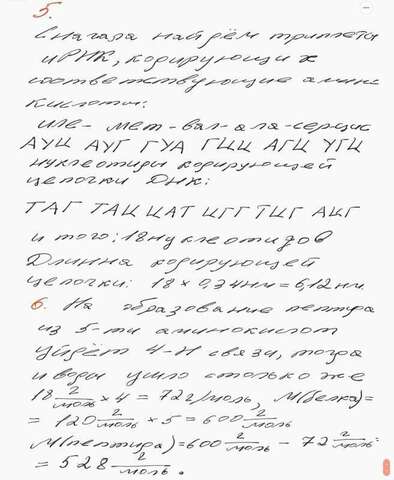 5.
Сначала найдём триплеты
иРНК, кодирующих
соответствующие амино
кислоты:
иле- мет-вал-ала-сер-цис
АУЦ АУГ ГУА ГЦЦ АГЦ УГЦ
нуклеотиды кодирующей
цепочки ДНК:
ТАГ ТАЦ ЦАТ ЦГГ ТЦГ АЦГ
и того: 18 нуклеотидов
Длинна кодирующей
цепочки: 18 × 0,34нм = 6,12 нм
6. На образование пептида
из 5-ти аминокислот
уйдёт 4-Н связи, тогда
и воды ушло столько же
18 г/моль × 4 = 72 г/моль, М(белка)=
= 120 г/моль × 5 = 600 г/моль
М(пептида)=600 г/моль - 72 г/моль=
= 528 г/моль.